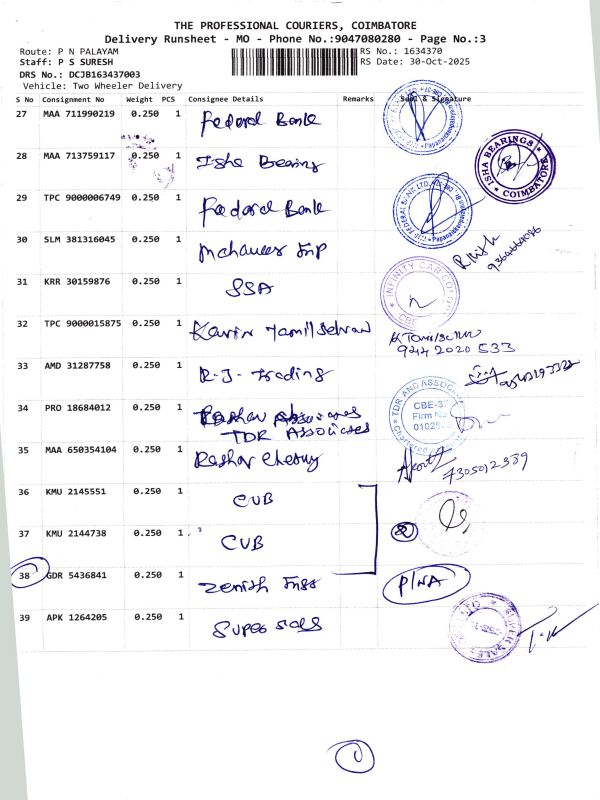 THE PROFESSIONAL COURIERS, COIMBATORE
Delivery Runsheet - MO - Phone No.:9047080280 - Page No.:3
Route: P N PALAYAM
RS No.: 1634370
Staff: P S SURESH
RS Date: 30-Oct-2025
DRS No.: DCJB163437003
Vehicle: Two Wheeler Delivery
S No Consignment No Weight PCS Consignee Details Remarks Seal & Signature
27 MAA 711990219 0.250 1 Federal Bank
28 MAA 713759117 0.250 1 Isha Bearing
ISHA BEARINGS COIMBATORE
29 TPC 9000006749 0.250 1 Federal Bank
30 SLM 381316045 0.250 1
31 KRR 30159876 0.250 1 SSA
INFINITY CAR CO
32 TPC 9000015875 0.250 1 Kavin Tamilselvan
9442020533
33 AMD 31287758 0.250 1 R.J. Trading
34 PRO 18684012 0.250 1
TDR Associates
TDR AND ASSOC
CBE-38
Firm No
35 MAA 650354104 0.250 1
7305012389
36 KMU 2145551 0.250 1 CUB
37 KMU 2144738 0.250 1 CUB
2
38 GDR 5436841 0.250 1 Zenith
P/NA
39 APK 1264205 0.250 1 Super Sales
SUPER SALES
1